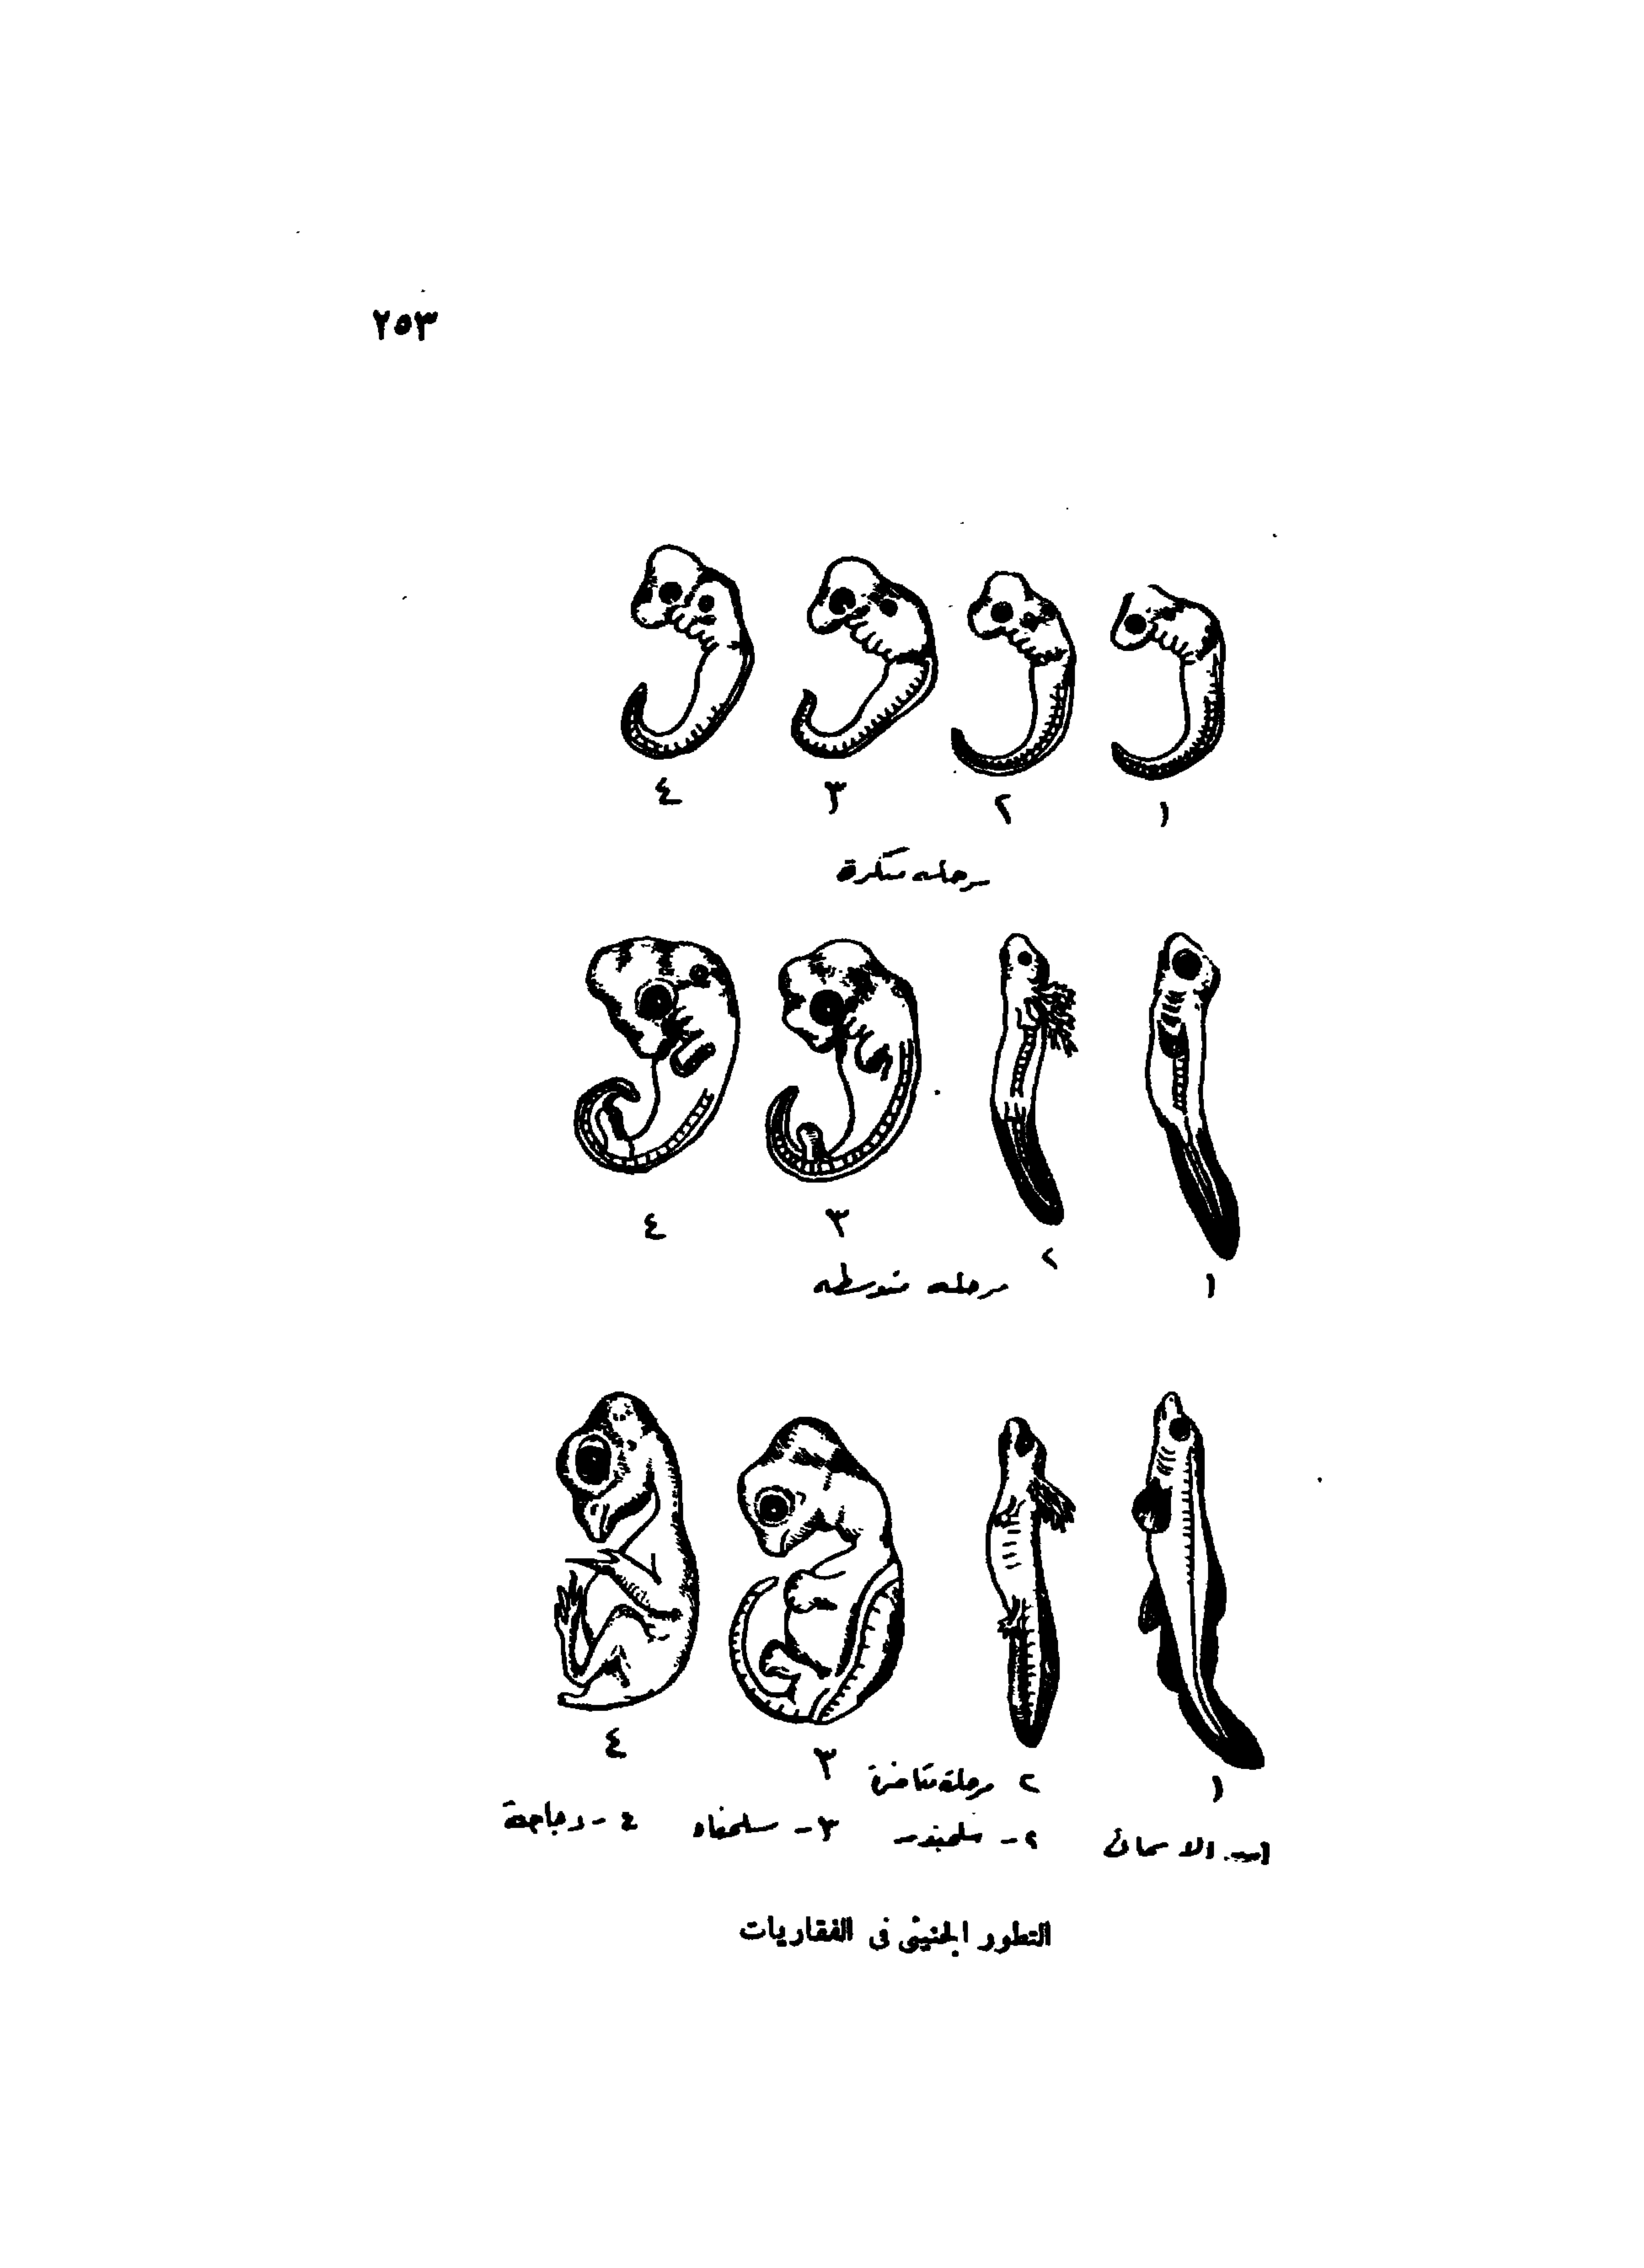 ٢٥٣
١ ٢ ٣ ٤
مرحله مبكرة
١ ٢ ٣ ٤
مرحله متوسطه
١ ٢ ٣ ٤
مرحلة متأخرة
١- الاسماك ٢- سلمندر ٣- سلحفاه ٤- دجاجة
التطور الجنينى فى الفقاريات